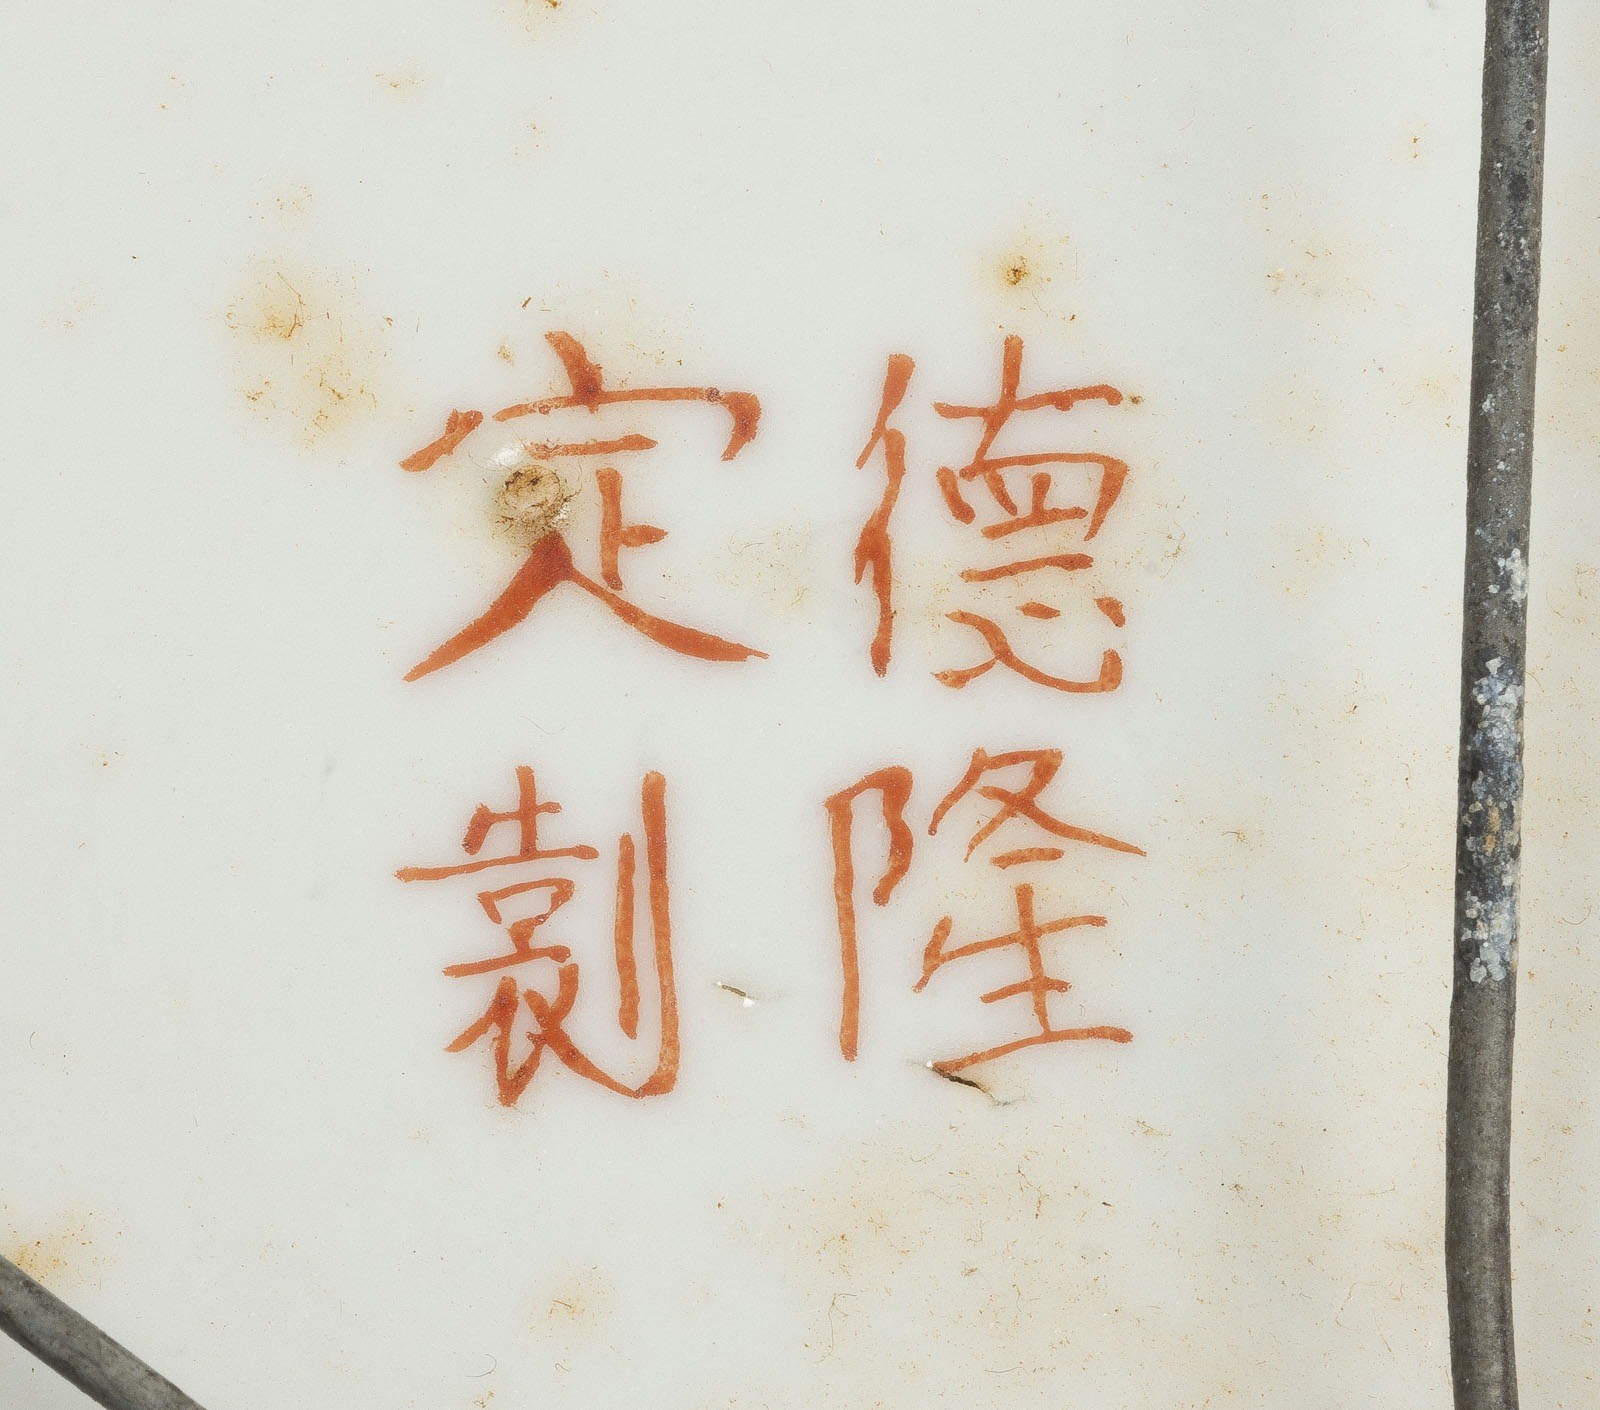 德隆
定製